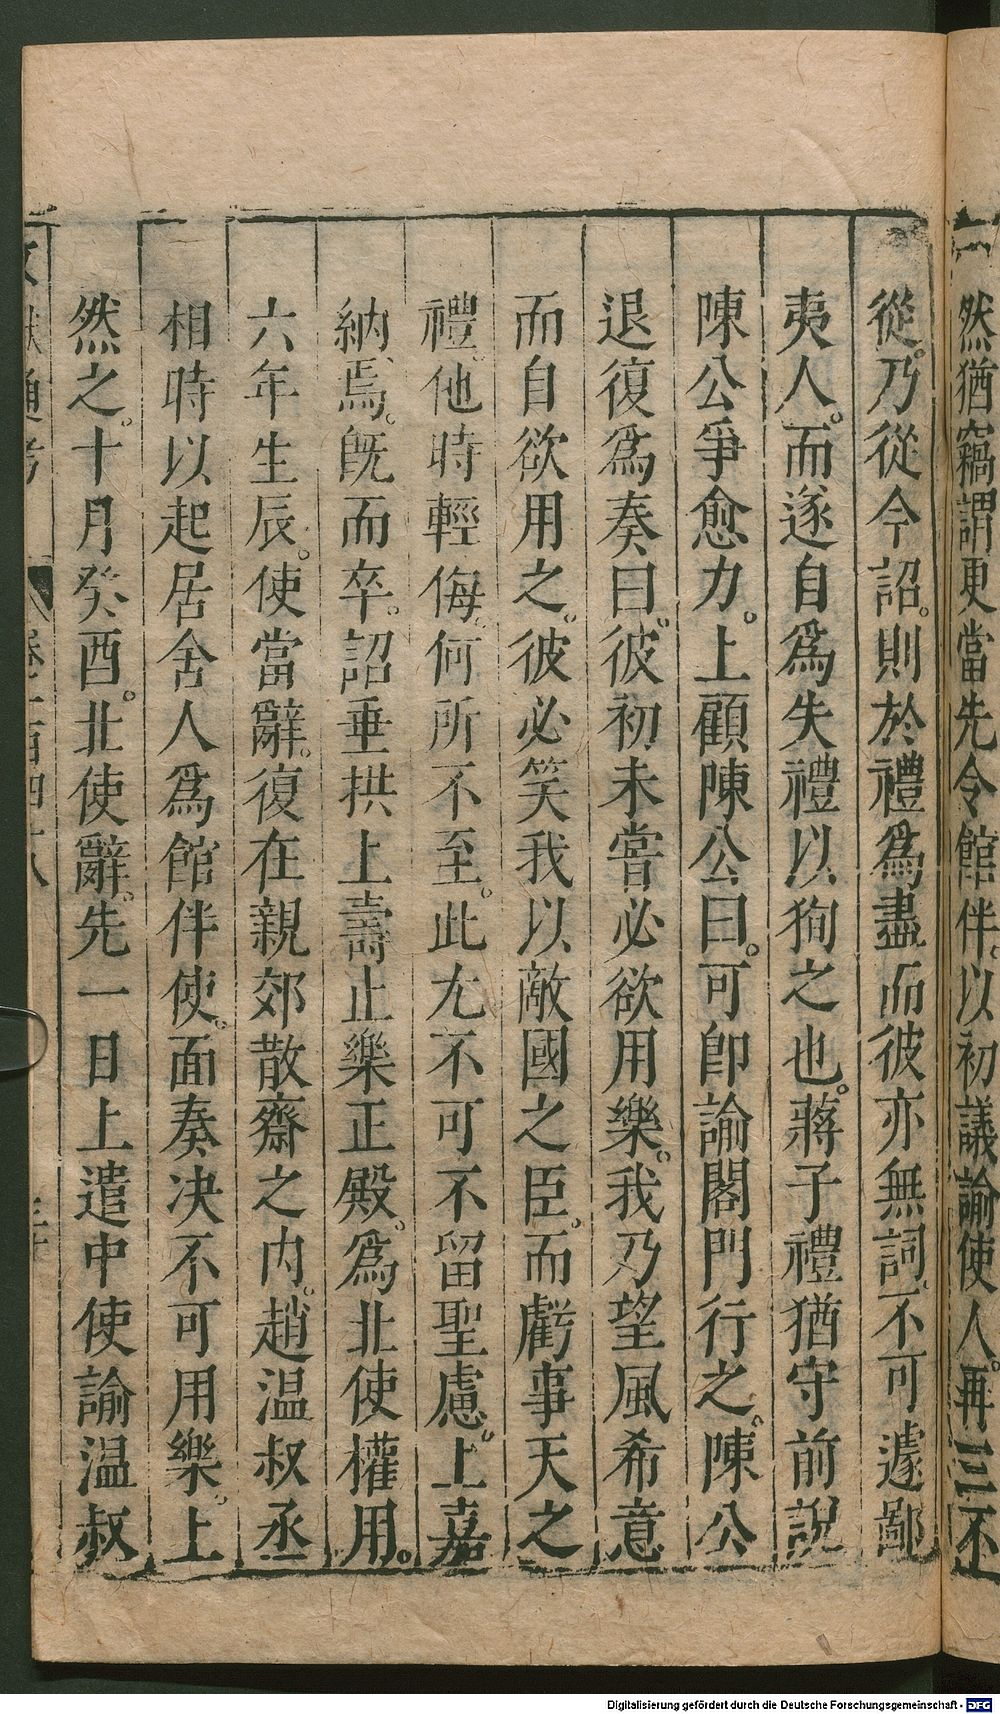 然猶竊謂更當先令館伴以初議諭使人再三不
從乃從今詔則於禮爲盡而彼亦無詞不可遽鄙
夷人而遂自爲失禮以狥之也蔣子禮猶守前說
陳公爭愈力上顧陳公曰可卽諭閤門行之陳公
退復爲奏曰彼初未嘗必欲用樂我乃望風希意
而自欲用之彼必笑我以敵國之臣而虧事天之
禮他時輕侮何所不至此尤不可不留聖慮上嘉
納焉旣而卒詔垂拱上壽止樂正殿爲北使權用
六年生辰使當辭復在親郊散齋之内趙温叔丞
相時以起居舍人爲館伴使面奏决不可用樂上
然之十月癸酉北使辭先一日上遣中使諭温叔
Digitalisierung gefördert durch die Deutsche Forschungsgemeinschaft - DFG